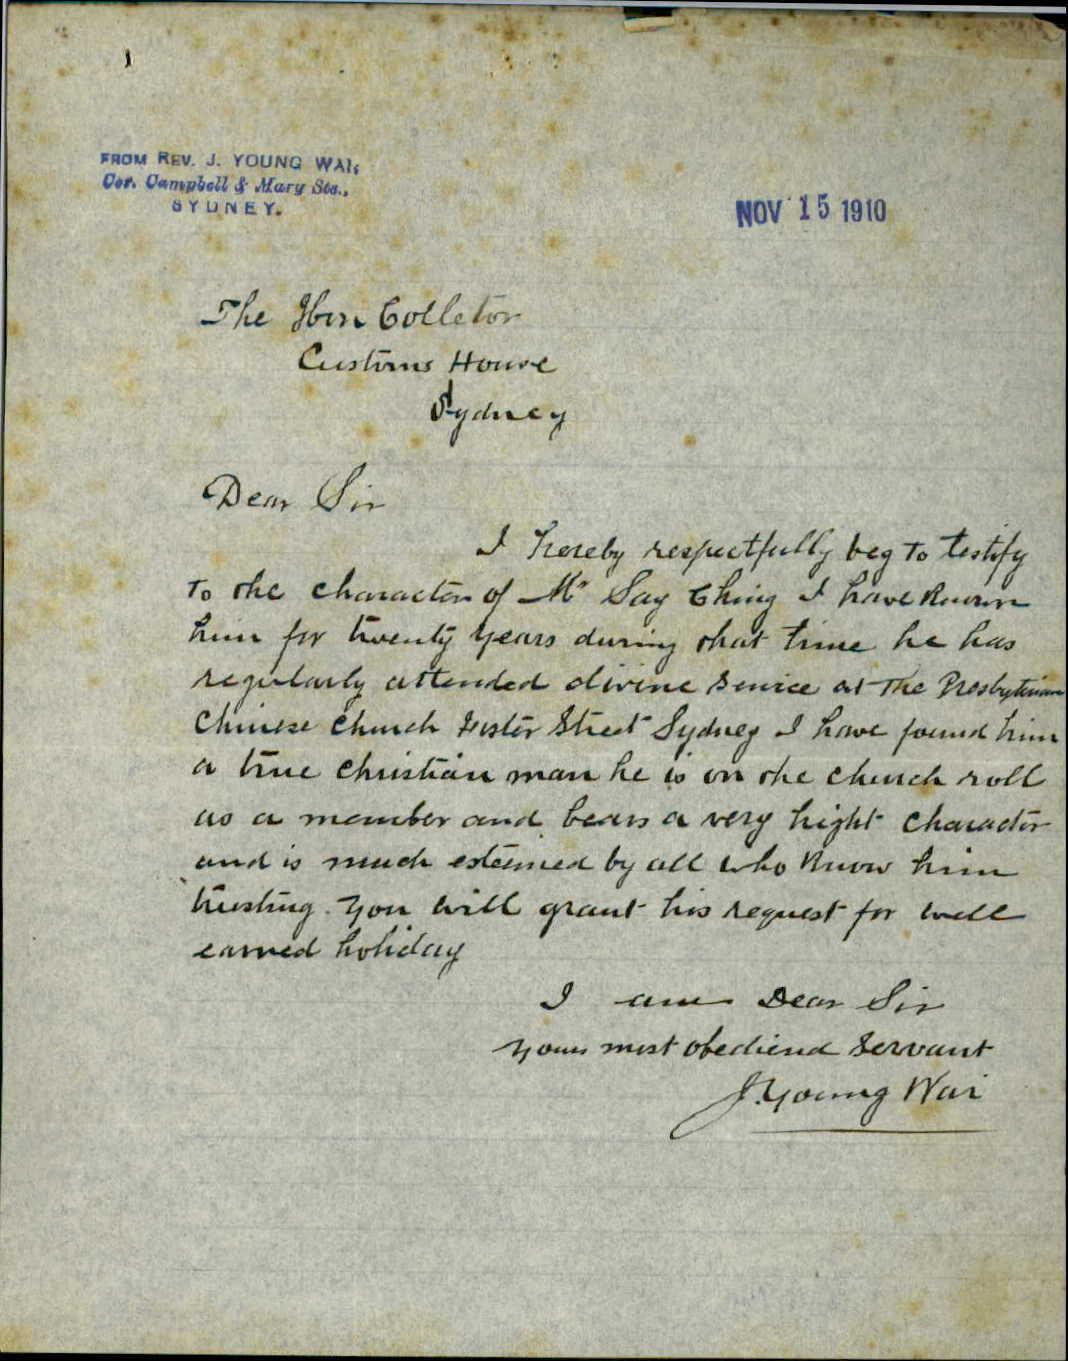 FROM REV. J. YOUNG WAI,
Cor. Campbell & Mary Sts.,
SYDNEY.
NOV 15 1910
The Hon Colletor
Customs House
Sydney
Dear Sir
I hereby respectfully beg to testify
to the character of Mr Say Ching I have known
him for twenty years during that time he has
regularly attended divine service at The Presbyterian
Chinese Church Foster Street Sydney I have found him
a true christian man he is on the church roll
as a member and bears a very hight character
and is much esteemed by all who know him
trusting you will grant his request for well
earned holiday
I am Dear Sir
Yours most obediend servant
J. Young Wai